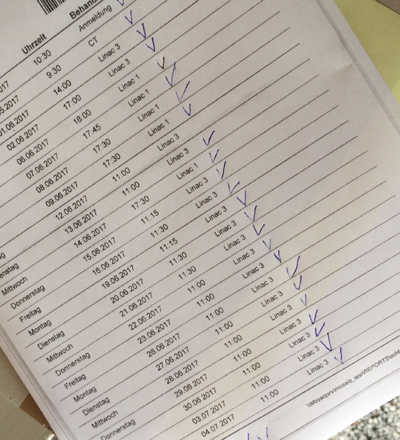 Uhrzeit
10:30 Anmeldung
9:30 CT
01.06.2017 14:00 Linac 3
02.06.2017 17:00 Linac 3
06.06.2017 18:00 Linac 1
07.06.2017 17:45 Linac 1
08.06.2017 17:30 Linac 1
09.06.2017 17:30 Linac 3
12.06.2017 11:00 Linac 3
13.06.2017 11:00 Linac 1
Mittwoch 14.06.2017 17:30 Linac 3
Donnerstag 15.06.2017 11:15 Linac 3
Freitag 16.06.2017 11:30 Linac 3
Montag 19.06.2017 11:15 Linac 3
Dienstag 20.06.2017 11:30 Linac 3
Mittwoch 21.06.2017 11:30 Linac 3
Donnerstag 22.06.2017 11:00 Linac 3
Freitag 23.06.2017 11:00 Linac 3
Montag 26.06.2017 11:00 Linac 3
Dienstag 27.06.2017 11:00 Linac 3
Mittwoch 28.06.2017 11:00 Linac 3
Donnerstag 29.06.2017 11:00 Linac 3
30.06.2017 11:00 Linac 3
03.07.2017 11:00
04.07.2017 11:00